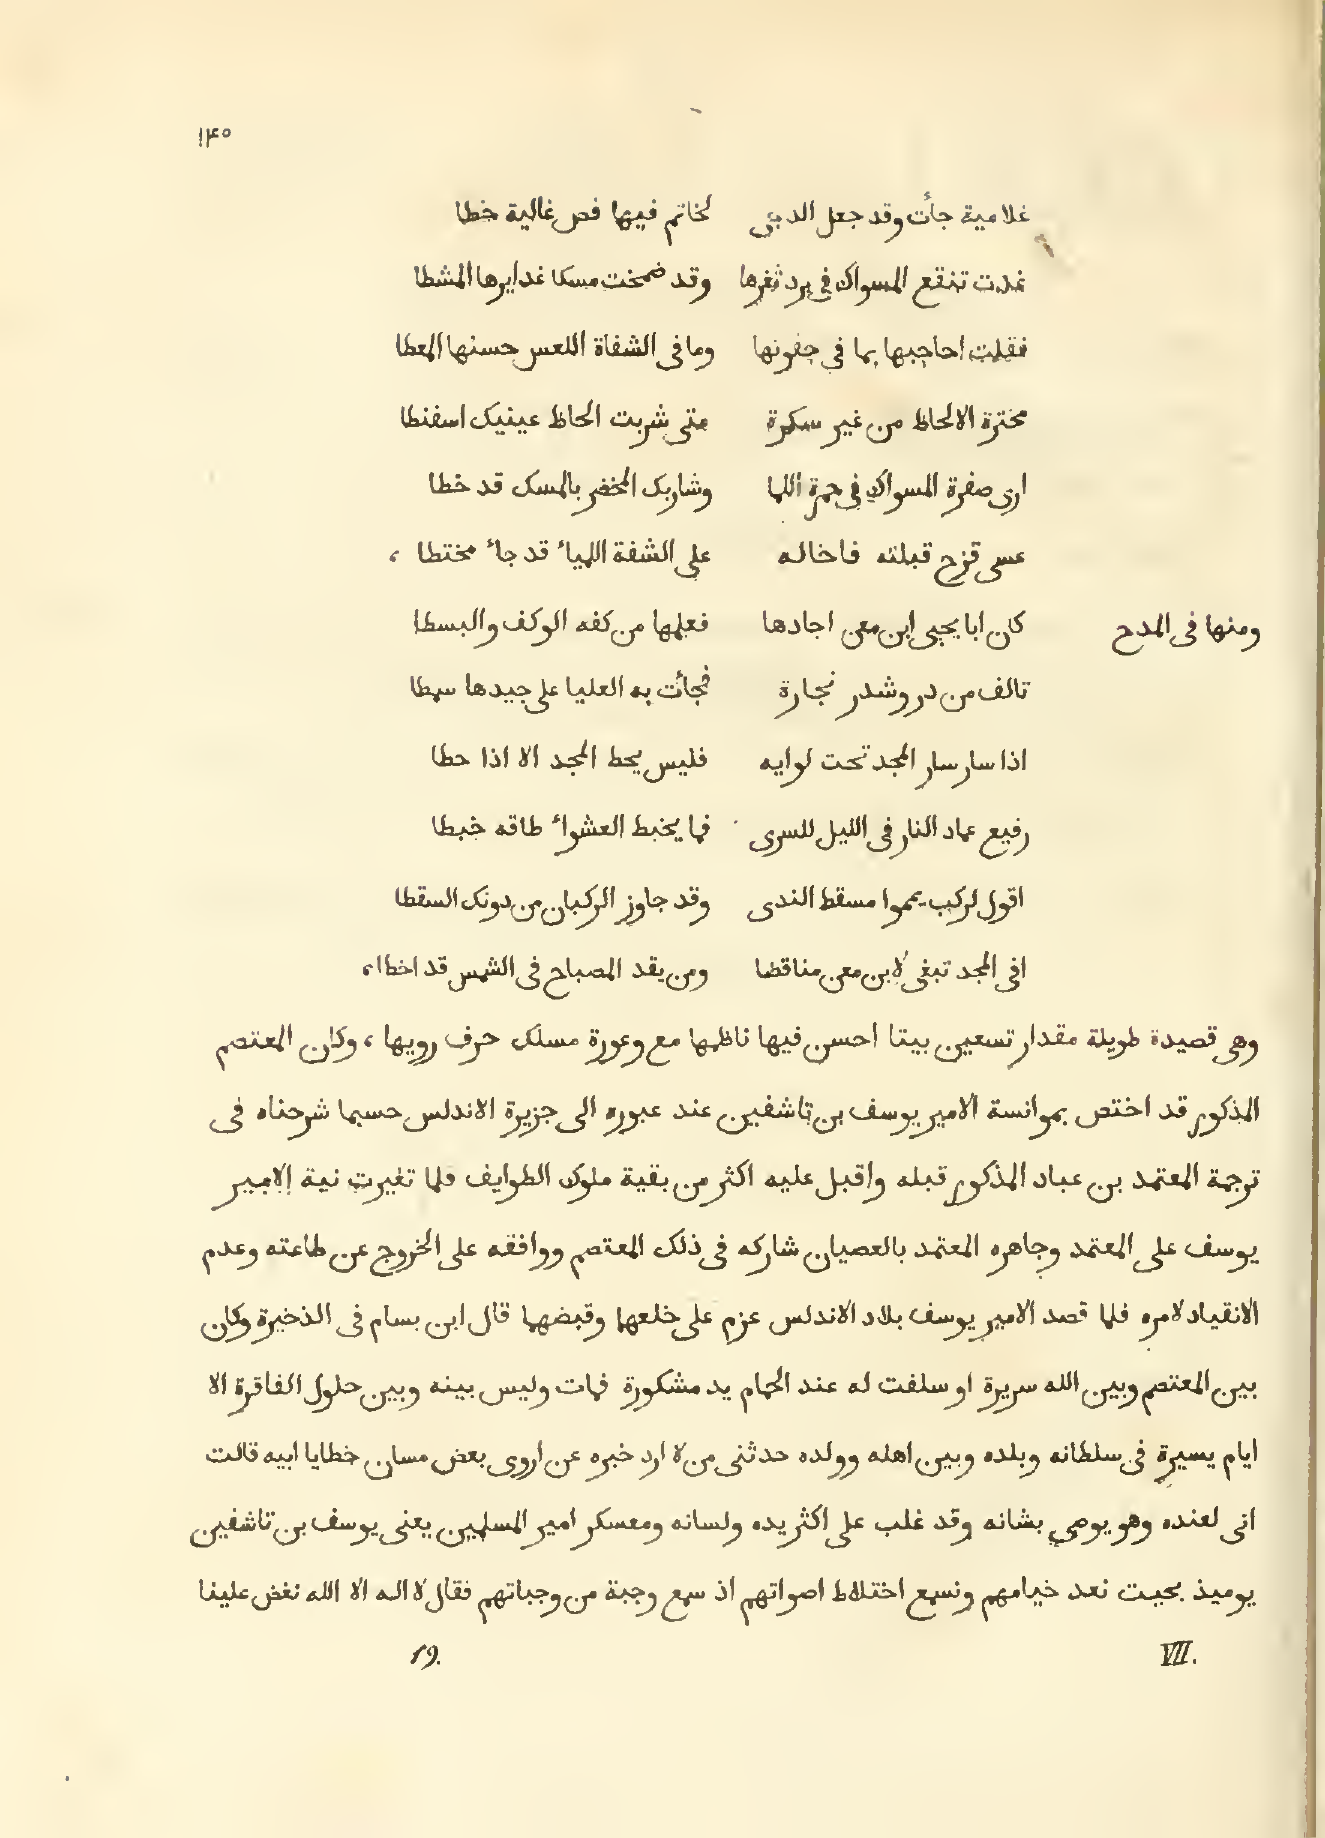 ١٤٥
غلامية جأت وقد جعل الدجى لخاتم فيها فص غالية خطا
غدت تنقع المسواك فى برد ثغرها وقد ضمخت مسكا غدايرها المشطا
فقلت احاجيها بما فى جفونها وما فى الشفاة اللعس حسنها المعطا
مخترة الالحاظ من غير سكرة متى شربت الحاظ عينيك اسفنطا
ارى صفرة المسواك فى حمرة اللما وشاربك المخضر بالمسك قد خطا
عسى قزح قبلته فاخاله على الشفة اللمياء قد جاء مختطا ،
ومنها فى المدح كان ابا يحيى ابن معن اجادها فعلمها من كفه الوكف والبسطا
تالف من در وشدر نجارة فجأت به العليا على جيدها سمطا
اذا سار سار المجد تحت لوايه فليس يحط المجد الا اذا حطا
رفيع عماد النار فى الليل للسرى فما يخبط العشواء طاقه خبطا
اقول لركب يمموا مسقط الندى وقد جاوز الركبان من دونك السقطا
افى المجد تبغى لابن معن مناقضا ومن يقد المصباح فى الشمس قد اخطا ،
وهى قصيدة طويلة مقدار تسعين بيتا احسن فيها ناظمها مع وعورة مسلك حرف رويها ، وكان المعتصم
المذكور قد اختص بموانسة الامير يوسف بن تاشفين عند عبوره الى جزيرة الاندلس حسبما شرحناه فى
ترجمة المعتمد بن عباد المذكور قبله واقبل عليه اكثر من بقية ملوك الطوايف فلما تغيرت نية الامير
يوسف على المعتمد وجاهره المعتمد بالعصيان شاركه فى ذلك المعتصم ووافقه على الخروج عن طاعته وعدم
الانقياد لامره فلما قصد الامير يوسف بلاد الاندلس عزم على خلعها وقبضهما قال ابن بسام فى الذخيرة وكان
بين المعتصم وبين الله سريرة او سلفت له عند الحمام يد مشكورة فمات وليس بينه وبين حلول الفاقرة الا
ايام يسيرة فى سلطانه وبلده وبين اهله وولده حدثنى من لا ارد خبره عن اروى بعض مسان خطايا ابيه قالت
انى لعنده وهو يوصى بشانه وقد غلب على اكثر يده ولسانه ومعسكر امير المسلمين يعنى يوسف بن تاشفين
يوميذ بحيت نعد خيامهم ونسمع اختلاط اصواتهم اذ سمع وجبة من وجباتهم فقال لا اله الا الله نغض علينا
VII. 19.